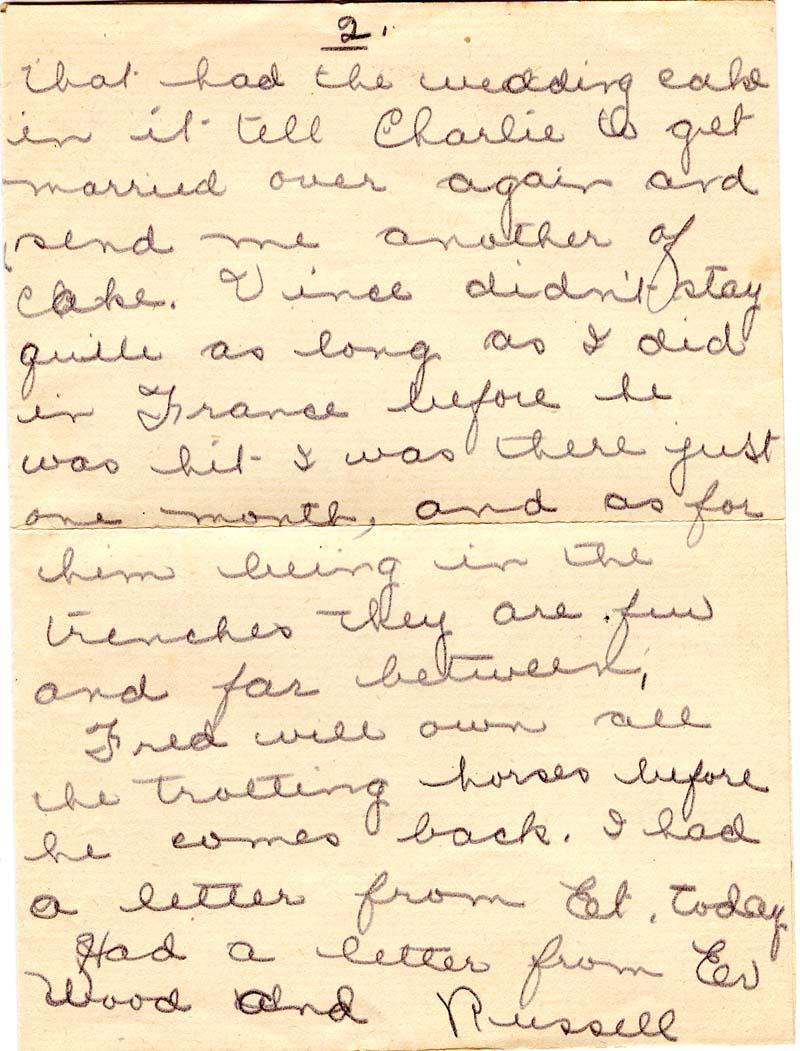 2.
that had the wedding cake
in it tell Charlie to get
married over again and
send me another of
cake. Vince didn't stay
quite as long as I did
in France before he
was hit I was there just
one month, and as for
him being in the
trenches they are few
and far between,
Fred will own all
the trotting horses before
he comes back. I had
a letter from Et. today
Had a letter from Ev
Wood and Russell